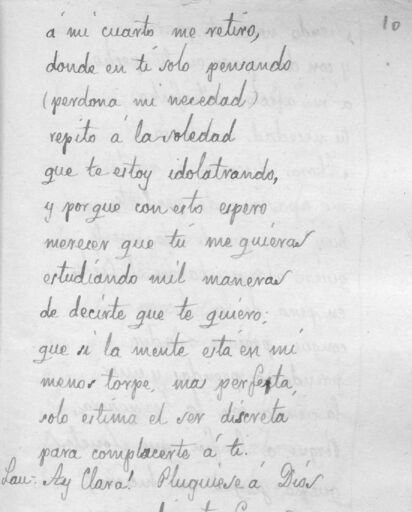 10
á mi cuarto me retiro,
donde en ti solo pensando
(perdona mi necedad)
repito á la soledad
que te estoy idolatrando,
y porque con esto espero
merecer que tú me quieras
estudiando mil maneras
de decirte que te quiero;
que si la mente está en mi
menos torpe, mas perfecta,
solo estima el ser discreta
para complacerte á ti.
Lau- Ay Clara! Pluguiese á Dios